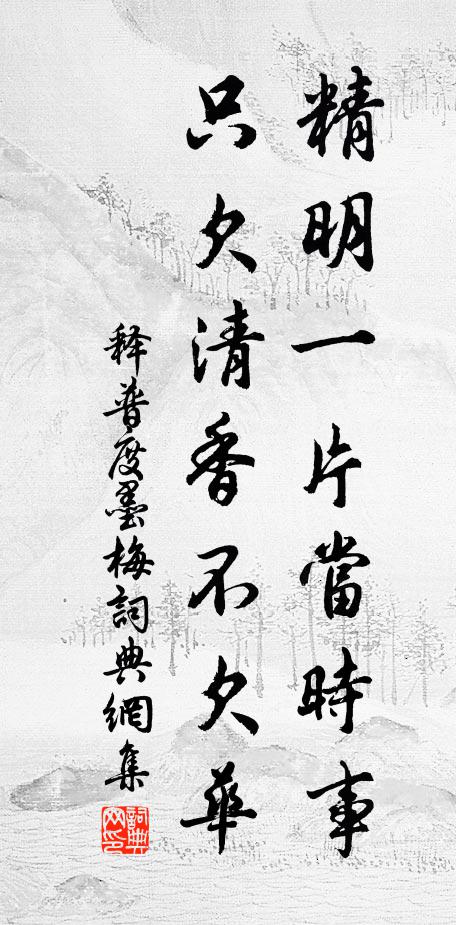 精明一片當時事
只欠清香不欠華
释普度墨梅詞典網集
詞典
网印